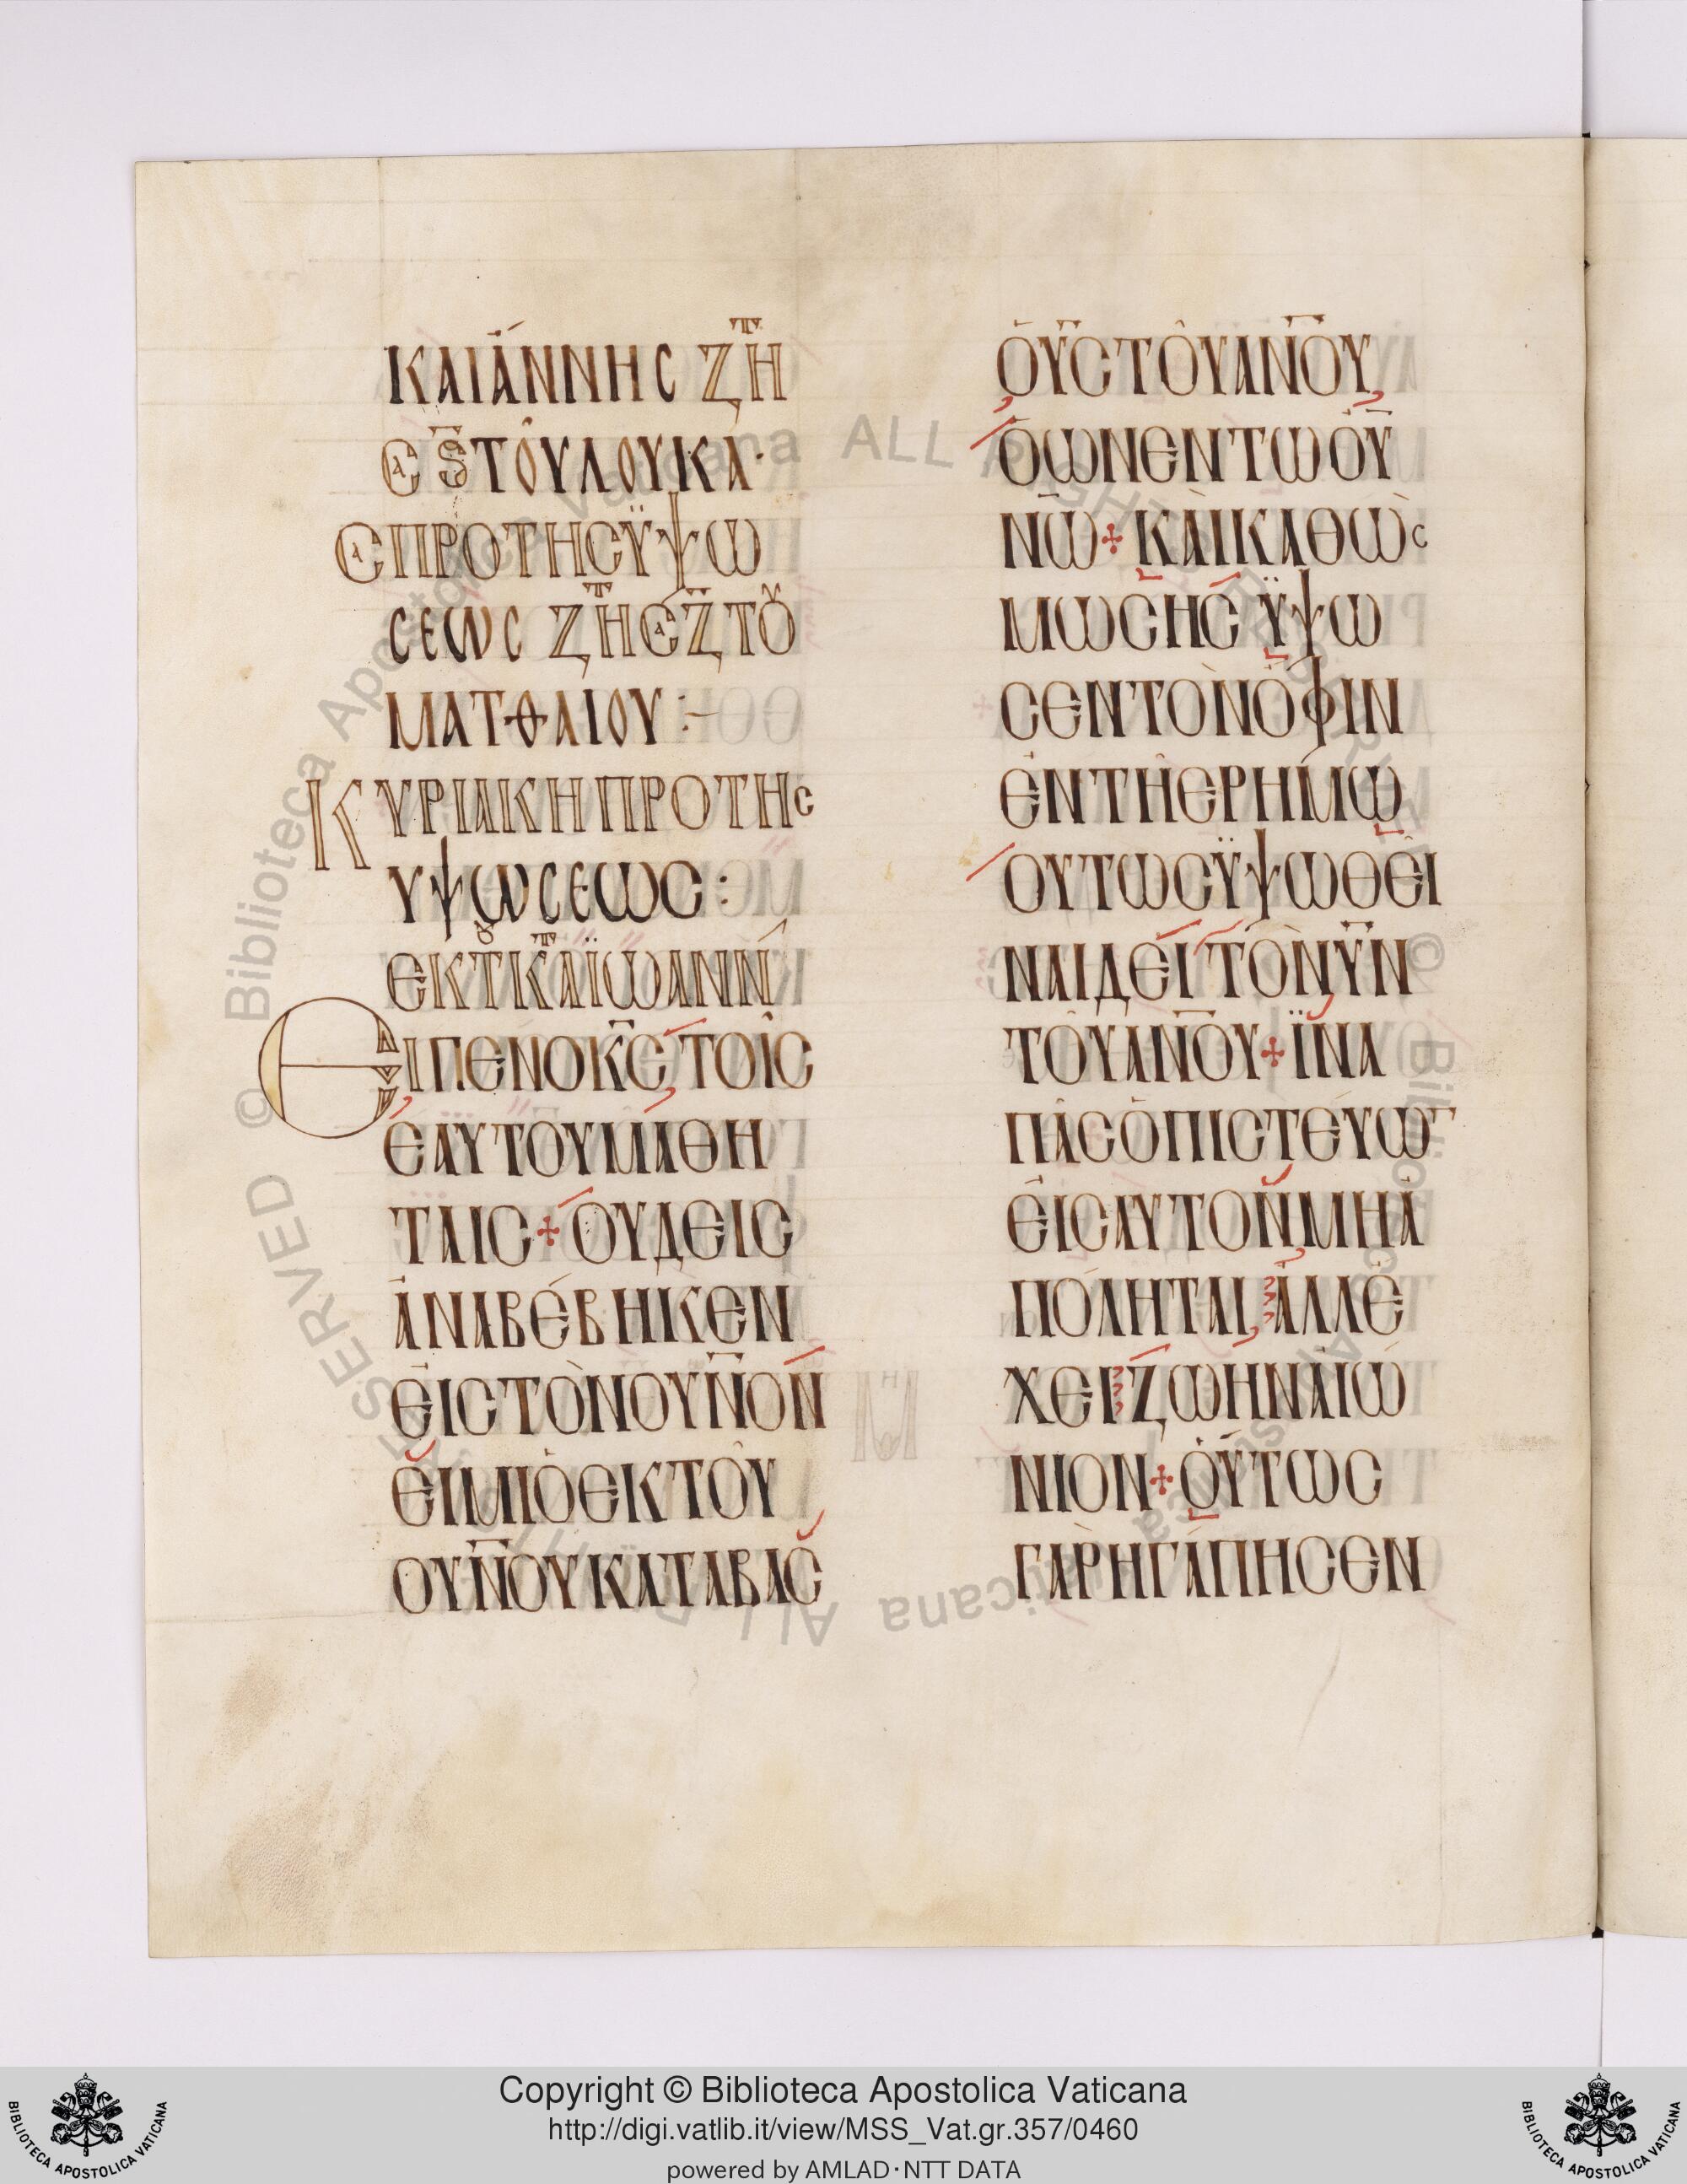 ΚΑΙ ΑΝΝΗϹ ΖΗΤ
ϹΑ Ϛ ΤΟΥ ΛΟΥΚΑ·
ϹΑ ΠΡΟ ΤΗϹ ΫΨΩ
ϹΕΩϹ ΖΗΤ ϹΑ Ζ ΤΟΥ
ΜΑΤΘΑΙΟΥ :-
ΚΥΡΙΑΚΗ ΠΡΟ ΤΗϹ
ΥΨΩϹΕΩϹ :
ΕΚ Τ ΚΑΤ ΪΩΑΝΝ
ΕΙΠΕΝ Ο Κ̅Ϲ̅ ΤΟΙϹ
ΕΑΥΤΟΥ ΜΑΘΗ
ΤΑΙϹ + ΟΥΔΕΙϹ
ΑΝΑΒΕΒΗΚΕΝ
ΕΙϹ ΤΟΝ ΟΥΝ̅ΟΝ
ΕΙ ΜΙ Ο ΕΚ ΤΟΥ
ΟΥΝ̅ΟΥ ΚΑΤΑΒΑϹ
Ο Υ̅Ϲ̅ ΤΟΥ ΑΝ̅ΟΥ
Ο ΩΝ ΕΝ ΤΩ ΟΥ
Ν̅Ω + ΚΑΙ ΚΑΘΩϹ
ΜΩϹΗϹ ΫΨΩ
ϹΕΝ ΤΟΝ ΟΦΙΝ
ΕΝ ΤΗ ΕΡΗΜΩ
ΟΥΤΩϹ ΫΨΩΘΕΙ
ΝΑΙ ΔΕΙ ΤΟΝ Υ̅Ν̅
ΤΟΥ ΑΝ̅ΟΥ + ΪΝΑ
ΠΑϹ Ο ΠΙϹΤΕΥΩ¯
ΕΙϹ ΑΥΤΟΝ ΜΗ Α
ΠΟΛΗΤΑΙ ΑΛΛ Ε
ΧΕΙ ΖΩΗΝ ΑΙΩ
ΝΙΟΝ + ΟΥΤΩϹ
ΓΑΡ ΗΓΑΠΗϹΕΝ
© Biblioteca Apostolica Vaticana ALL RIGHTS RESERVED
Copyright © Biblioteca Apostolica Vaticana
http://digi.vatlib.it/view/MSS_Vat.gr.357/0460
powered by AMLAD·NTT DATA
BIBLIOTECA APOSTOLICA VATICANA
BIBLIOTECA APOSTOLICA VATICANA